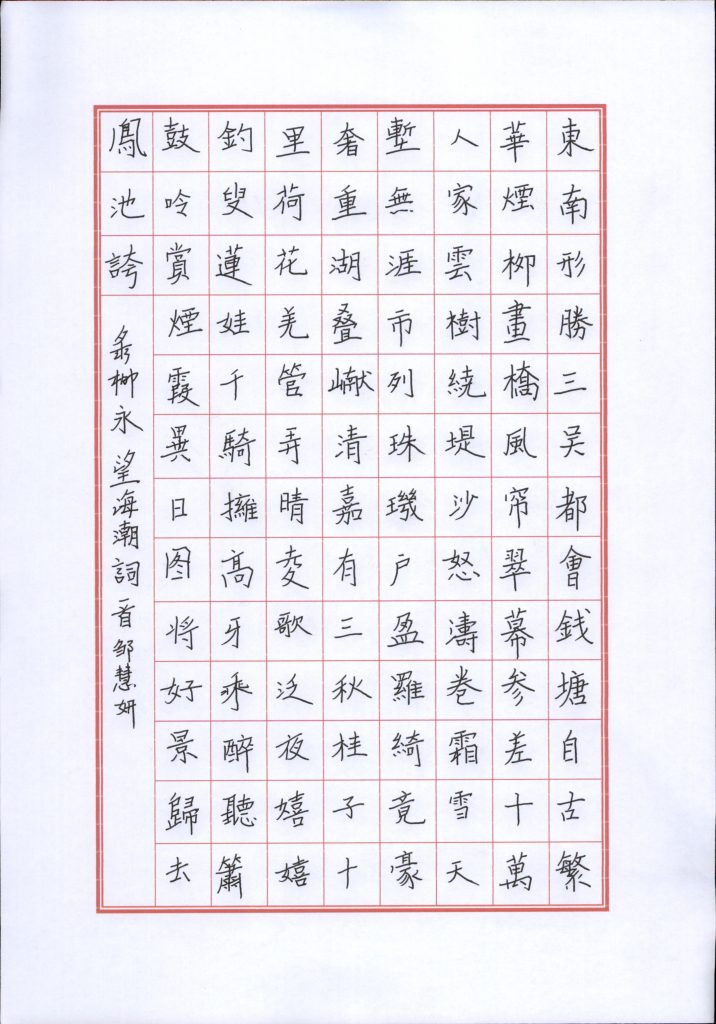 東南形勝三吳都會錢塘自古繁
華煙栁畫橋風帘翠幕参差十萬
人家雲樹繞堤沙怒濤卷霜雪天
塹無涯市列珠璣户盈羅綺竟豪
奢重湖叠巘清嘉有三秋桂子十
里荷花羌管弄晴夌歌泛夜嬉嬉
釣叟蓮娃千騎擁高牙乘醉聽簫
鼓吟賞煙霞異日图将好景歸去
鳳池誇
录栁永望海潮詞一首邹慧妍